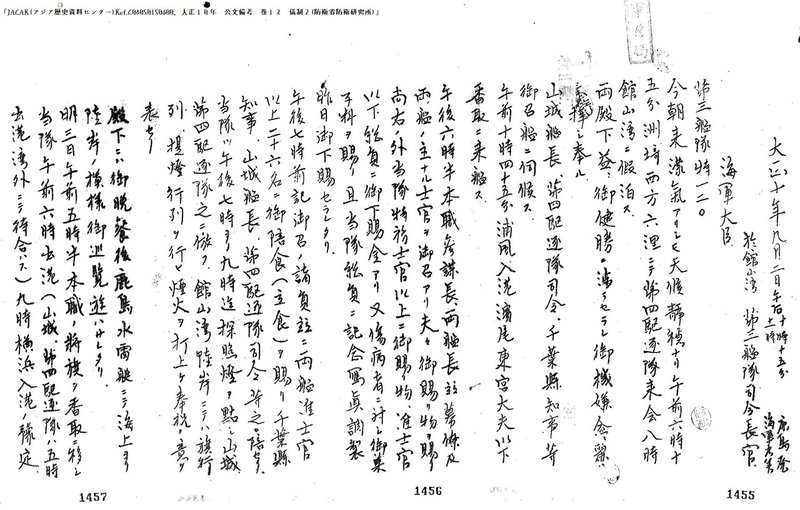 「JACAR(アジア歴史資料センター)Ref.C08050150600、大正10年 公文備考 巻12 儀制2(防衛省防衛研究所)」
大正十年九月二日午后十時十五分
鹿島発
海軍省着
於館山湾 第三艦隊司令長官
海軍大臣
第三艦隊特一二〇
今朝来濛気アリシモ天候静穏ナリ午前六時十
五分洲埼西方六浬ニテ第四駆逐隊来会八時
館山湾ニ假泊ス
両殿下益々御健勝ニ渉ラセラレ御機嫌念々麗
シク拝シ奉ル
山城艦長、第四駆逐隊司令、千葉縣知事等
御召艦ニ伺候ス
午前十時四十五分浦風入港濱尾東宮大夫以下
香取ニ来艦ス
午後六時半本職参謀長両艦長並幕僚及
両艦ノ主ナル士官ヲ御召アリ夫々御賜リ物ヲ賜リ
尚右ノ外当隊特務士官以上ニ御賜物、准士官
以下総員ニ御下賜金アリ又傷病者ニ対シ御菓
子料ヲ賜リ且当隊総員ニ記念寫眞調製
昨日御下賜セラレタリ
午後七時前記御召ノ諸員並ニ両艦准士官
以上二十六名ニ御陪食(立食)ヲ賜リ千葉縣
知事、山城艦長、第四駆逐隊司令等之ニ陪セリ
当隊ハ午後七時ヨリ九時迄探照燈ヲ點シ山城、
第四駆逐隊之ニ倣フ館山湾陸岸ニテハ旗行
列、提燈行列ヲ行ヒ煙火ヲ打上ケ奉祝ノ意ヲ
表セリ
殿下ニハ御晩餐後鹿島水雷艇ニテ海上ヨリ
陸岸ノ模様御巡覧遊ハサレタリ
明三日午前五時半本職ノ将旗ヲ香取ニ移シ
当隊午前六時出港(山城、第四駆逐隊ハ五時
出港湾外ニテ待合ハス)九時横浜入港ノ豫定
1455
1456
1457